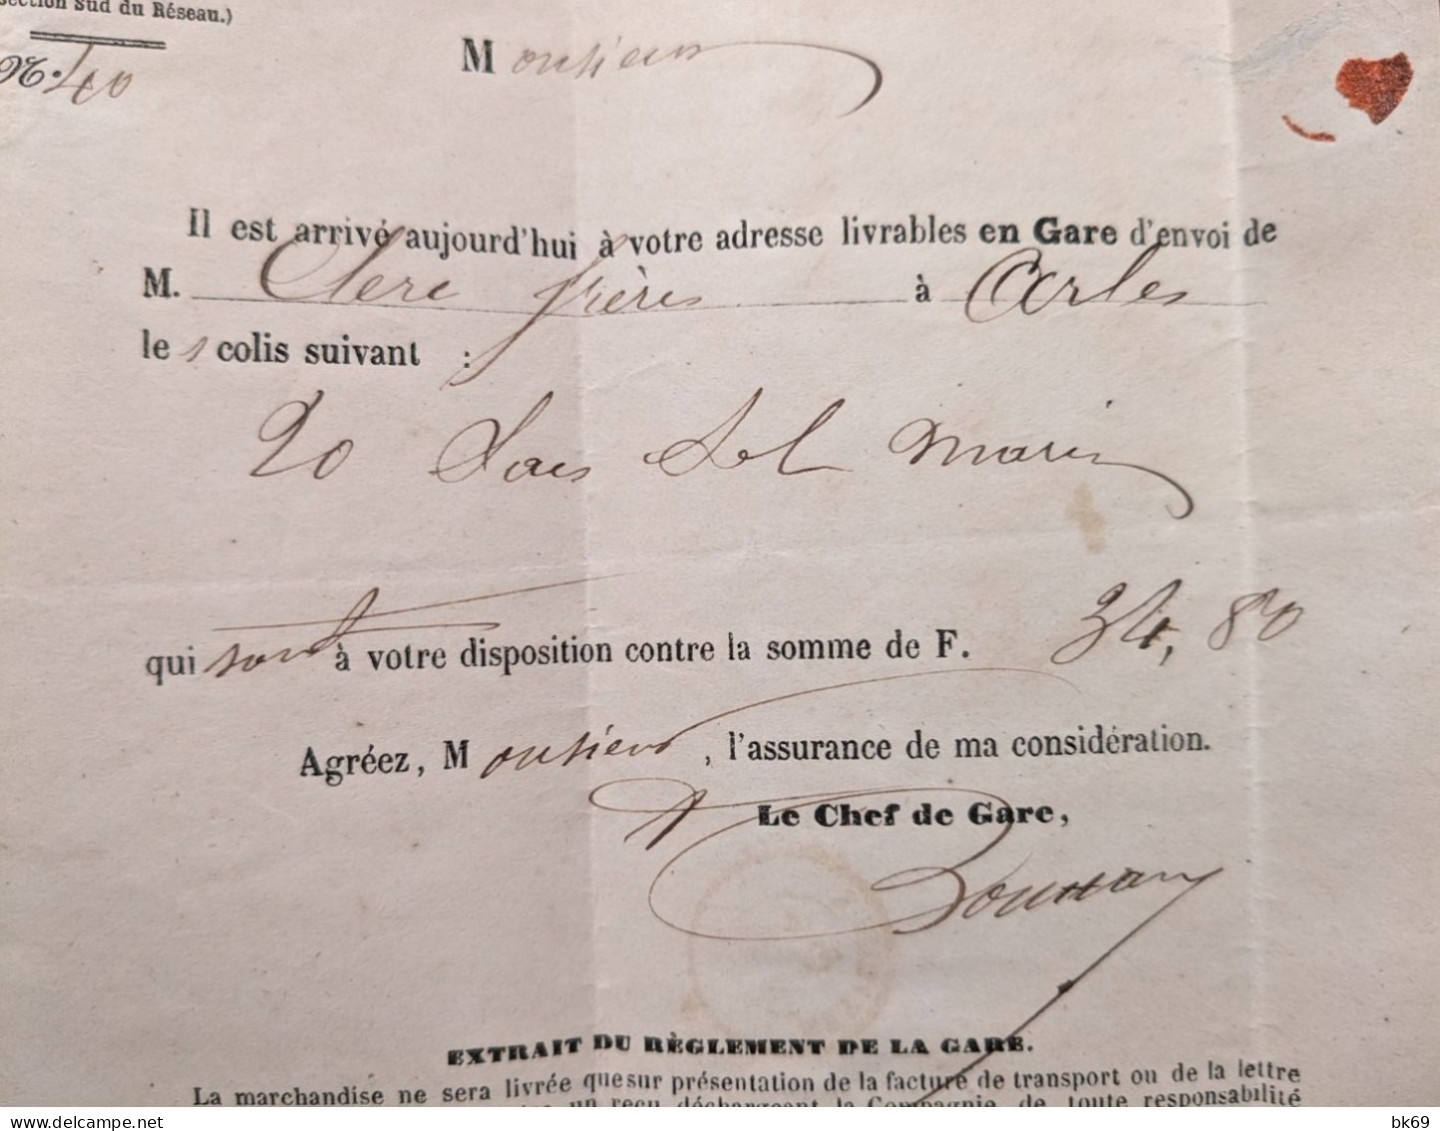 Section Sud du Réseau.)
N.º 40
Monsieur
Il est arrivé aujourd'hui à votre adresse livrables en Gare d'envoi de
M. Clerc frères à Arles
le s colis suivant :
20 Sacs Sel Marin
qui sont à votre disposition contre la somme de F. 34,80
Agréez, Monsieur, l'assurance de ma considération.
Le Chef de Gare,
EXTRAIT DU RÈGLEMENT DE LA GARE.
La marchandise ne sera livrée que sur présentation de la facture de transport ou de la lettre
un reçu déchargeant la Compagnie de toute responsabilité
bk69